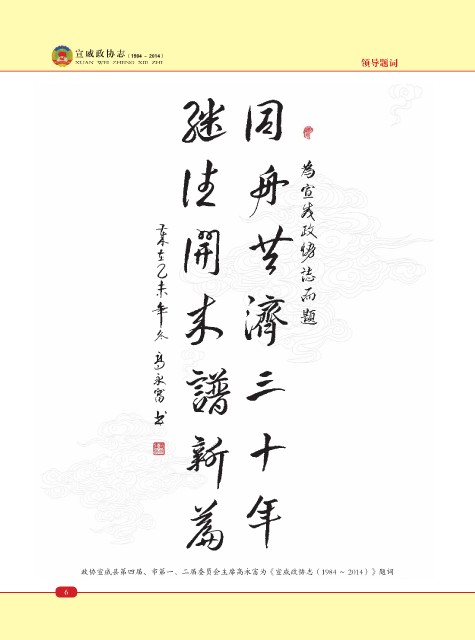 宣威政协志（1984～2014）
XUAN WEI ZHENG XIE ZHI
领导题词
為宣威政協誌而題
同舟共濟三十年
继往開来譜新篇
歲在乙未年冬 高永富书
政协宣威县第四届、市第一、二届委员会主席高永富为《宣威政协志（1984～2014）》题词
6